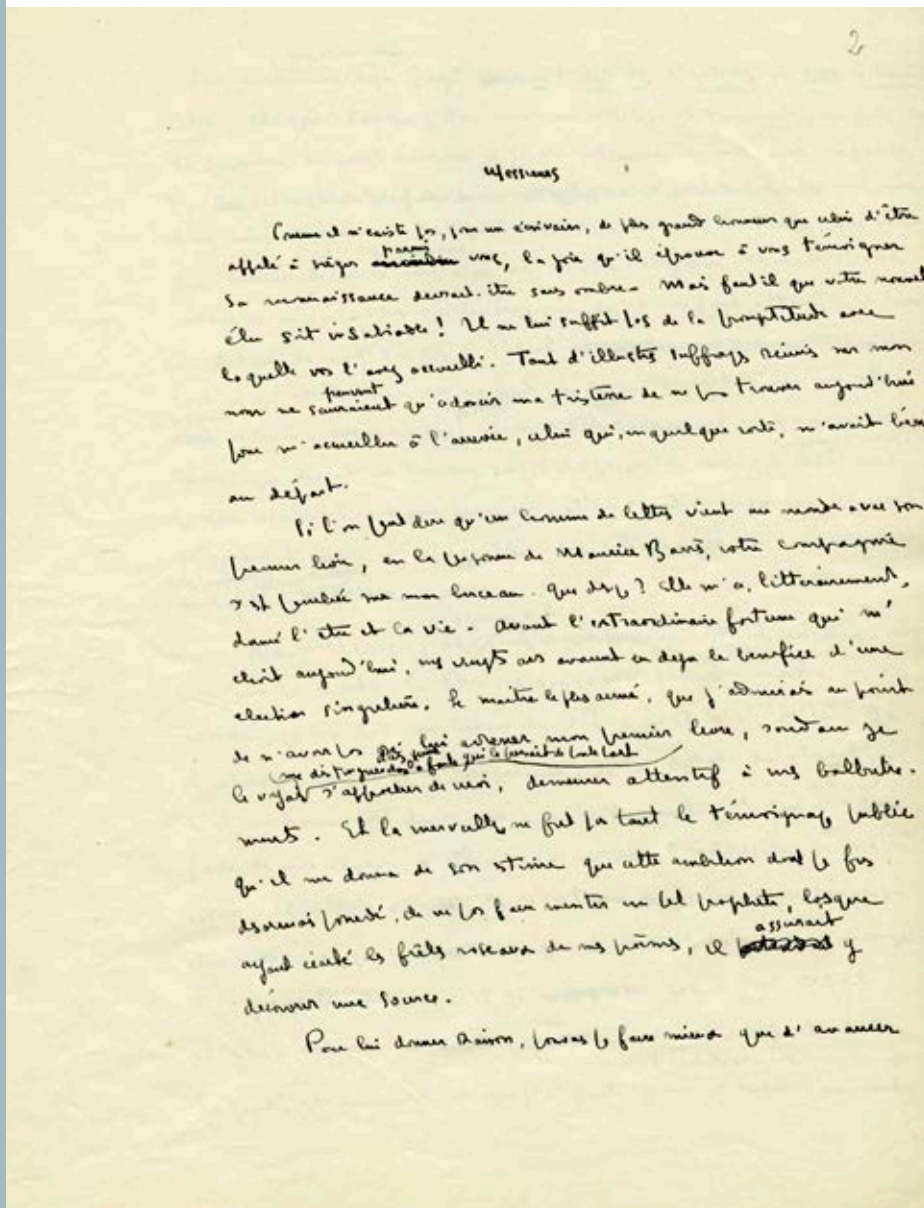 2
Messieurs
Comme il n'existe pas, pour un écrivain, de plus grand honneur que celui d'être
appelé à siéger parmi vous, la joie qu'il éprouve à vous témoigner
sa reconnaissance devrait être sans ombre. Mais faut il que votre nouvel
élu soit insatiable ! Il ne lui suffit pas de la promptitude avec
laquelle vous l'avez accueilli. Tant d'illustres suffrages réunis sur mon
nom ne sauraient peuvent qu'adoucir ma tristesse de ne pas trouver aujourd'hui
pour m'accueillir à l'arrivée, celui qui, en quelque sorte, m'avait béni
au départ.
Si l'on peut dire qu'un homme de lettres vient au monde avec son
premier livre, en la personne de Maurice Barrès, votre compagnie
s'est penchée sur mon berceau. que dis-je ? Elle m'a, littérairement,
donné l'être et la vie. Avant l'extraordinaire fortune qui m'
échoit aujourd'hui, mes vingt ans avaient eu déjà le bénéfice d'une
élection singulière. Le maître le plus aimé, que j'admirais au point
de n'avoir pas osé lui adresser mon premier livre, soudain je
le voyais me distinguer s'approcher de moi, demeurer attentif à mes balbutie-
ments. Et la merveille ne fut pas tant le témoignage public
qu'il me donna de son estime que cette ambition dont je fus
désormais possédé, de ne pas faire mentir un tel prophète, lorsque
ayant écarté les frêles roseaux de mes poèmes, il assurait y
découvrir une source.
Pour lui donner raison, pouvais je faire mieux que d'avancer